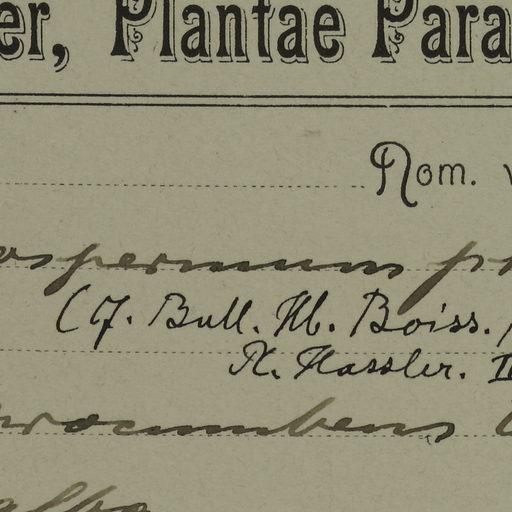 er, Plantae Para
Nom. v
ospermum p
(cf. Bull. Hb. Boiss.
Pl. Hassler. II
procumbens
alba